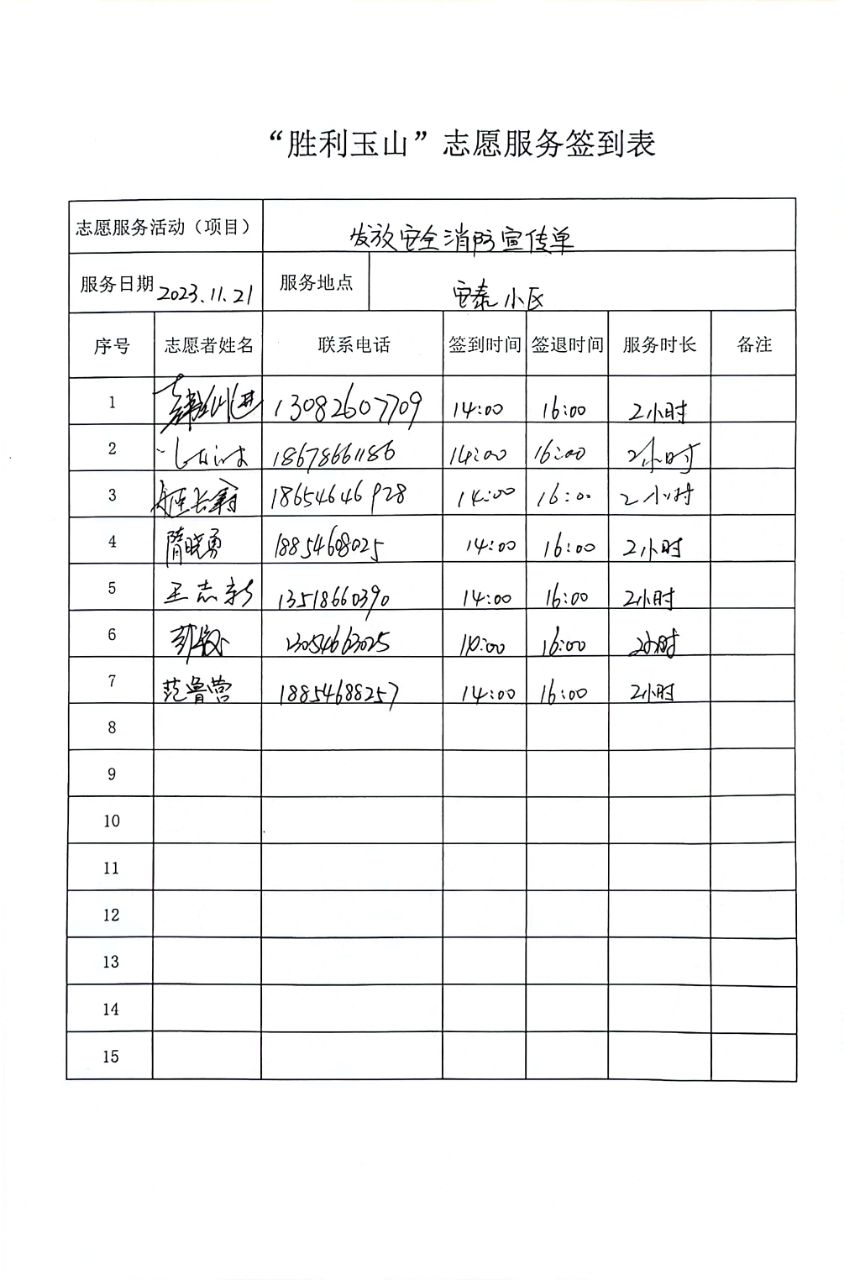 “胜利玉山”志愿服务签到表
志愿服务活动（项目） 发放安全消防宣传单
服务日期 2023.11.21 服务地点 安泰小区
序号 志愿者姓名 联系电话 签到时间 签退时间 服务时长 备注
1 13082607709 14:00 16:00 2小时
2 18678661186 14:00 16:00 2小时
3 18654646928 14:00 16:00 2小时
4 隋晓勇 18854608025 14:00 16:00 2小时
5 王志新 13518660390 14:00 16:00 2小时
6 彭敏 13054663025 14:00 16:00 2小时
7 范鲁营 18854688257 14:00 16:00 2小时
8
9
10
11
12
13
14
15